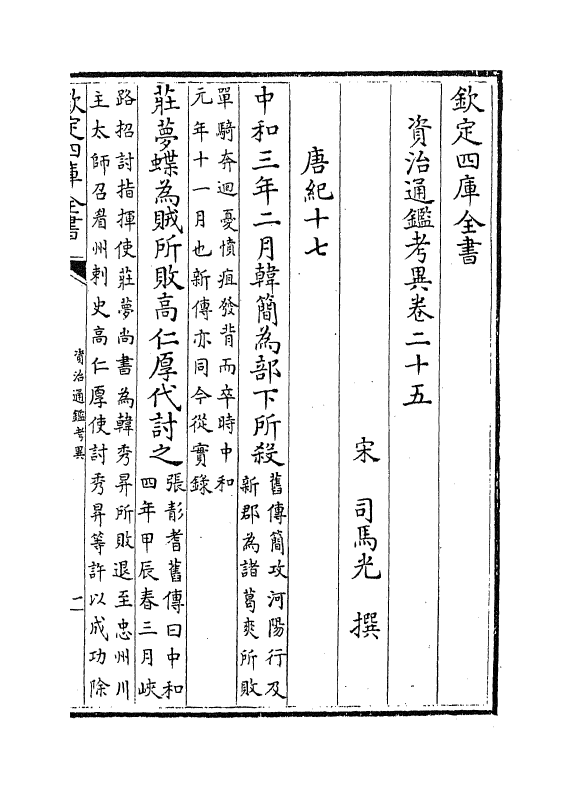 欽定四庫全書
資治通鑑考異卷二十五
宋 司馬光 撰
唐紀十七
中和三年二月韓簡為部下所殺
舊傳簡攻河陽行及
新郡為諸葛爽所敗
單騎奔迴憂憤疽發背而卒時中和
元年十一月也新傳亦同今從實錄
莊夢蝶為賊所敗高仁厚代討之
張彭耆舊傳曰中和
四年甲辰春三月峽
路招討指揮使莊夢尚書為韓秀昇所敗退至忠州川
主太師召眉州刺史高仁厚使討秀昇等許以成功除
欽定四庫全書
資治通鑑考異
一